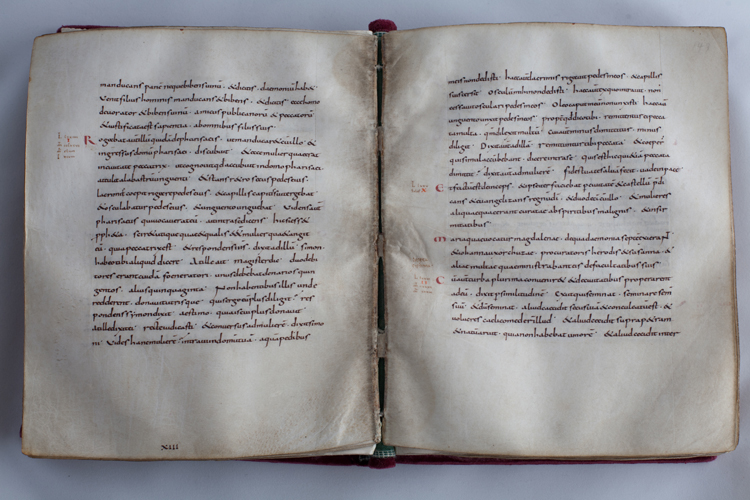 manducans pane neque bibens uinu · & dicitis · daemoniu hab&
Uenit filius hominis manducans & bibens · & dicitis ecce homo
deuorator & bibens uinu · amicus publicanoru & peccatoru
& iustificata est sapientia · ab omnibus filiis suis
Rogabat aute illu quida de pharisaeis · ut manducar& cu illo &
ingressus domu pharisaei · discubuit · & ecce mulier quae erat
in ciuitate peccatrix · ut cognouit qd accubuit in domo pharisaei
attulit alabastru unguenti · & stans r&ro secus pedes eius
lacrimis coepit rigare pedes eius · & capillis capitis sui tergebat
& osculabatur pedes eius · & unguento unguebat · Uidens aut
pharisaeus qui uocauerat eu · ait intra se dicens · hic si ess&
pph&a · scir& utique quae & qualis e& mulier quae tangit
eu · quia peccatrix est · & respondens ihs · dixit ad illu · simon
habeo tibi aliquid dicere · At ille ait · magister dic · duo debi
tores erant cuida foeneratori · unus debebat denarios quin
gentos · alius quinquaginta · Non habentibus illis unde
redderent · donauit utrisque · quis ergo eu plus diligit · res
pondens symon dixit · aestimo · quia is cui plus donauit
at ille dixit ei · recte iudicasti · & conuersus ad muliere · dixit simo
ni · Uides hanc muliere · intraui in domu tua · aqua pedibus
XIII
meis non dedisti · haec aut lacrimis rigauit pedes meos · & capillis
suis tersit · Osculu mihi non dedisti · haec aut ex quo intrauit · non
cessauit osculari pedes meos · Oleo caput meu non unxisti · haec aut
unguento unxit pedes meos · propter qd dico tibi · remittentur ei pecca
ta multa · qm dilexit multu · Cui aut minus dimittitur · minus
diligit · Dixit aut ad illa · Remittuntur tibi peccata · & coeper
qui simul accubebant · dicere intra se · Quis est hic qui & iam peccata
dimittit · dixit aut ad muliere · fides tua te salua fecit · uade in pace
Et factu est deinceps · & ipse iter faciebat per ciuitate & castellu pdi
cans & euangelizans regnu di · & duodeci cu illo · & mulieres
aliquae quae erant curatae ab spiritibus malignis · & infir
mitatibus
Maria quae uocatur magdalenae · de qua daemonia septe exierant
& iohanna uxor chuzae · procuratoris herodis & susanna · &
aliae multae quae ministrabant eis de facultatibus suis
Cu aut turba plurima conuenir& & de ciuitatibus properarent
ad eu · dixit p similitudine · Exiit qui seminat · seminare sem
suu · & du seminat · aliud cecidit secus uia & conculcatu est · &
uolucres caeli comederunt illud · & aliud cecidit supra p&ram
& natu aruit · quia non habebat umore · & aliud cecidit inter